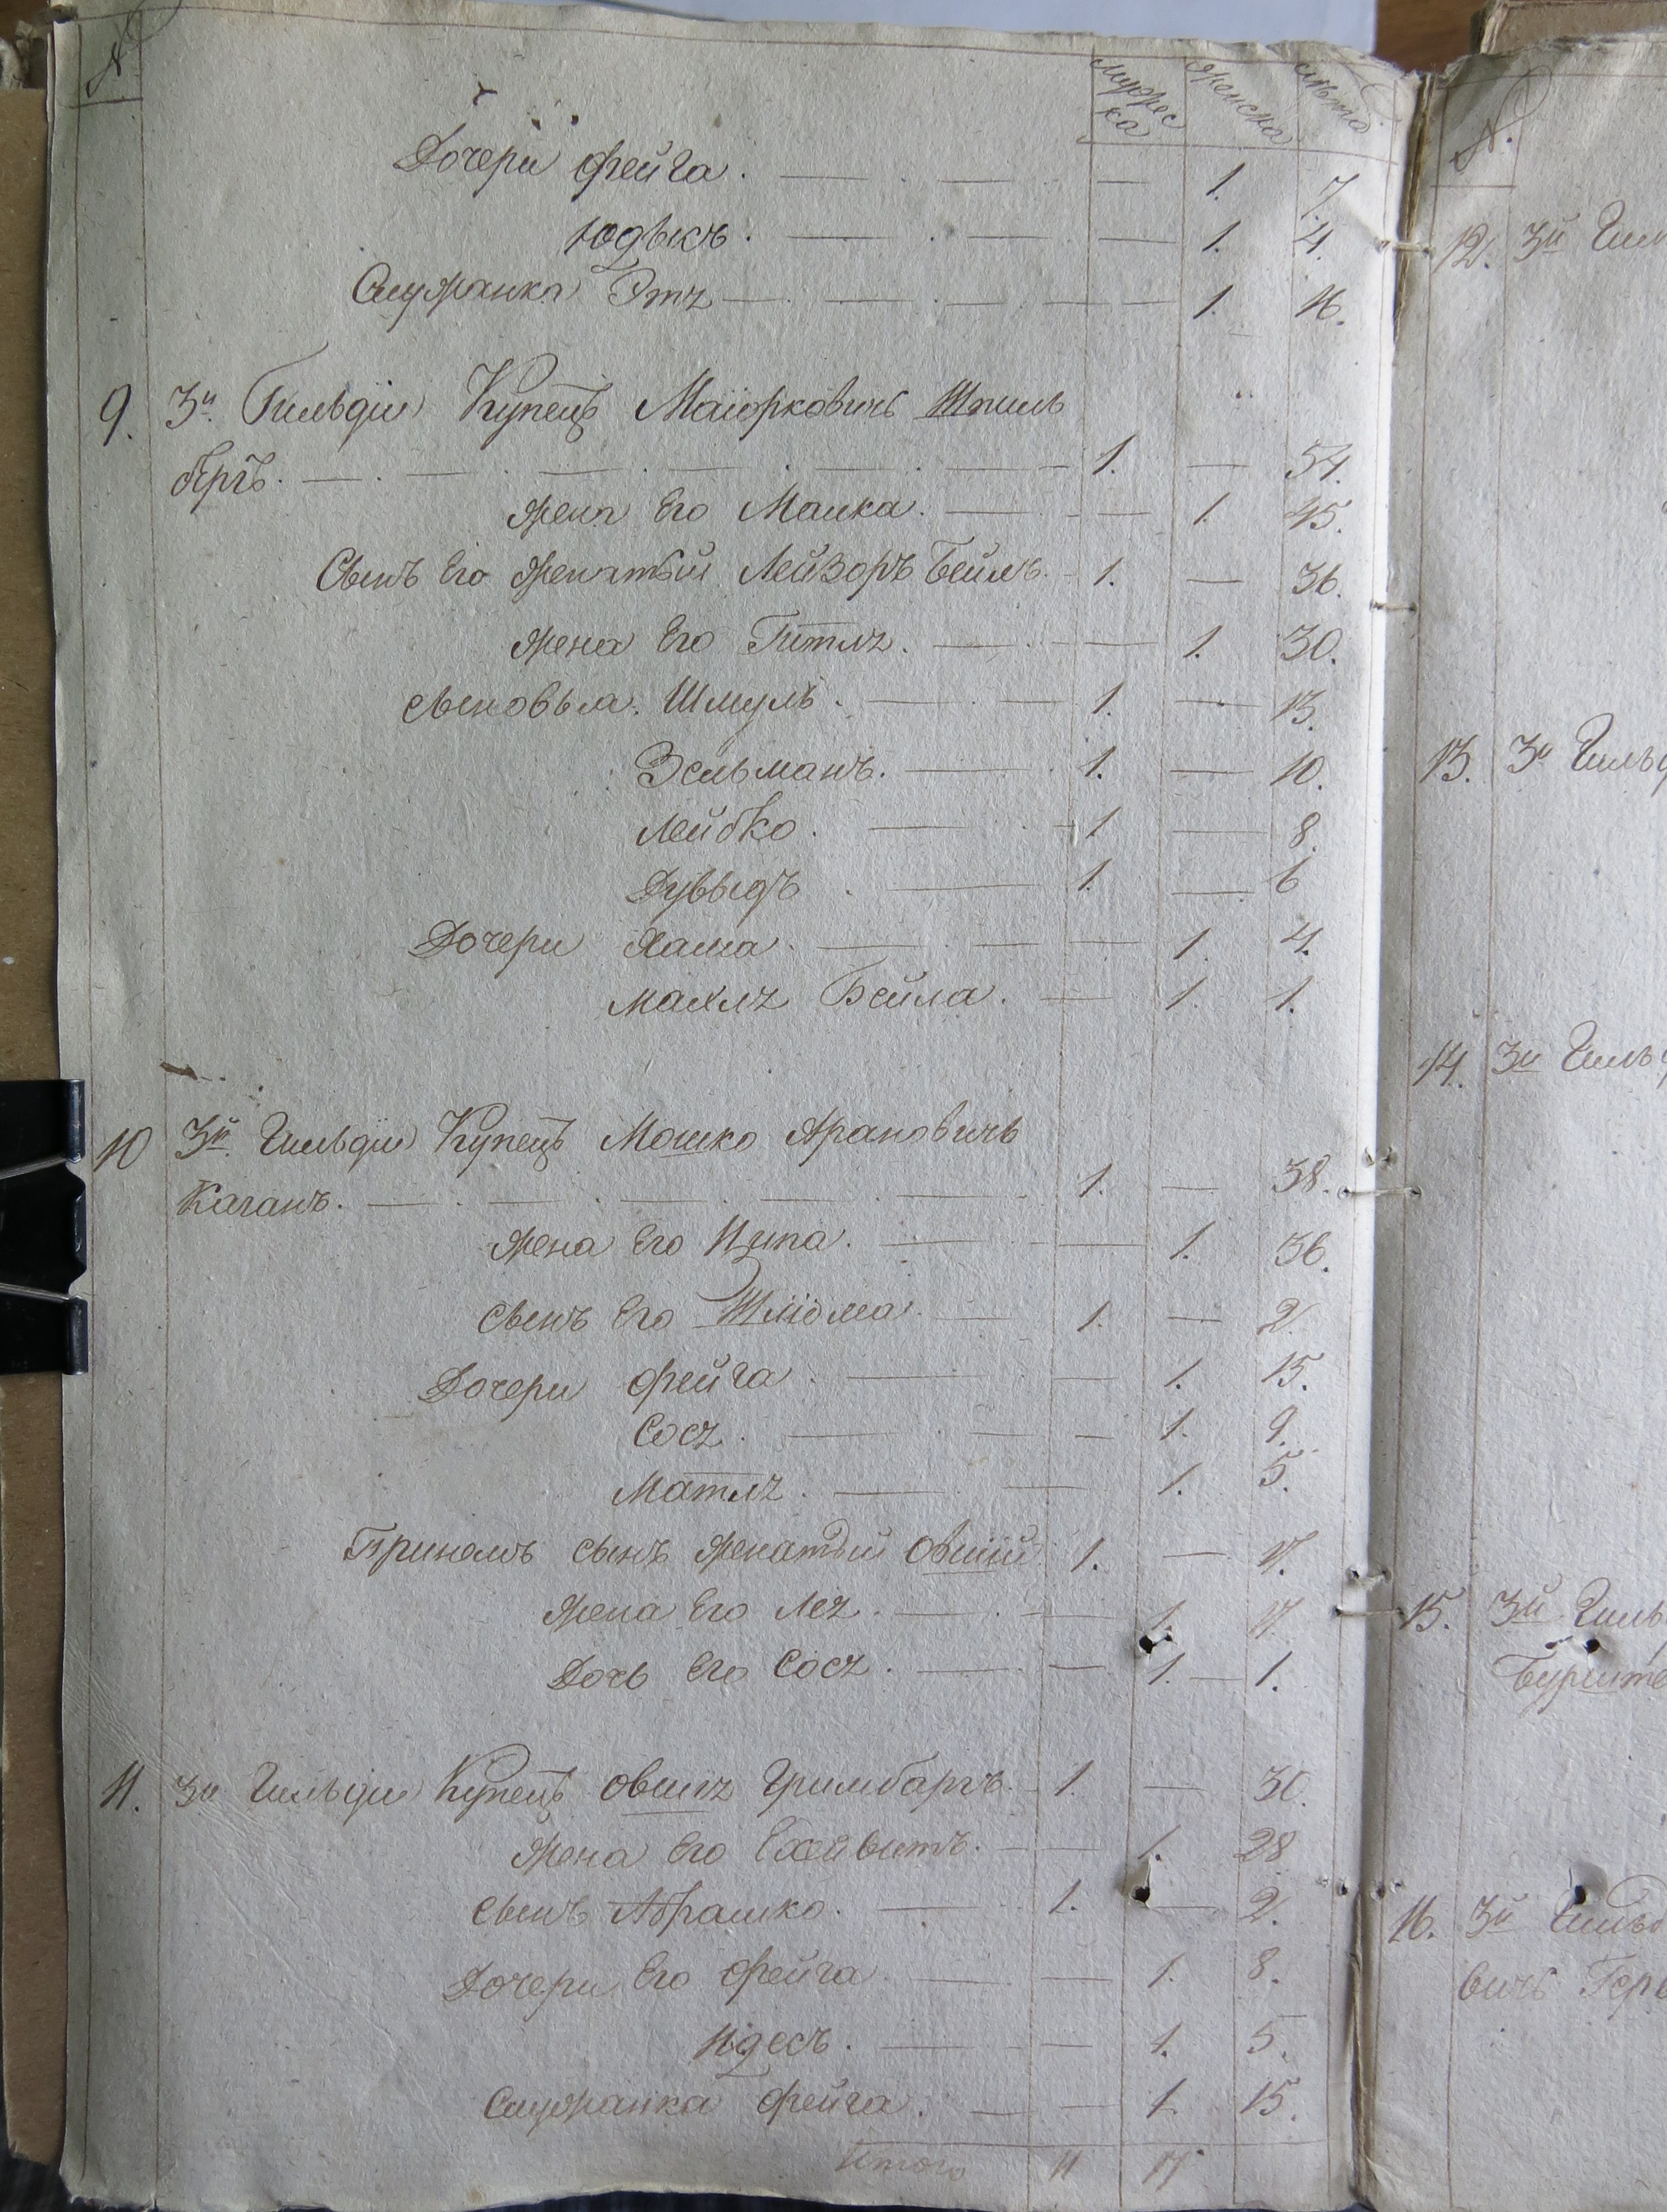 № мужеска женска лѣта
Дочери Фейга. 1. 7.
Юдысъ. 1. 4.
Служанка Этя 1. 16.
9. 3й Гильдіи Купецъ Маіорковичь Шпиль
бергъ. 1. — 54.
Жена Его Малка. 1. 45.
Сынъ Его Женатый Лейзоръ Бейль. 1. — 36.
Жена Его Гитля. 1. 30.
Сыновья. Шмуль. 1. — 13.
Зельманъ. 1. — 10.
Лейбко. 1 — 8.
Дувыдъ 1. — 6
Дочери Хана. 1. 4.
Махля Бейла. 1. 1.
10 3й Гильдіи Купецъ Мошко Ароновичь
Каганъ. 1. — 38.
Жена Его Ципа. 1. 36.
Сынъ Его Шліома 1. — 2.
Дочери Фейга 1. 15.
Сося. 1. 9.
Матля. 1. 5.
сынъ Женатый Овшій 1. — 17.
Жена Его Лея. 1. 17.
Дочь Его Сося. 1. — 1.
11. 3й Гильдіи Купецъ Овшія Гримбаргъ. 1. — 30.
Жена Его 1. 28
Сынъ Абрашко. 1. — 2.
Дочери Его Фейга 1. 8.
Идесъ. 1. 5.
Служанка Фейга. 1. 15.
Итого 11 17
№.
12. 3й Гил
13. 3й Гильд
14. 3й Гильд
15. 3й Гиль
Бурште
16. 3й Гильд
вичь Гер